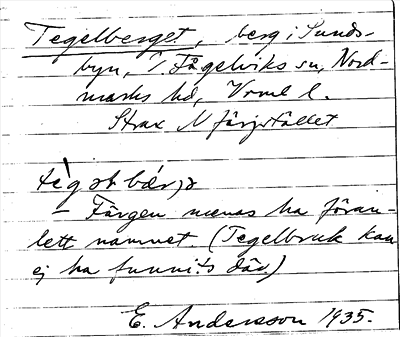 Tegelberget, berg i Sunds-
byn, V. Fågelviks sn, Nord-
marks hd, Vrml l.
Strax N färjstället
tégəlbær̀jə
– Färgen menas ha föran-
lett namnet. (Tegelbruk kan
ej ha funnits där.)
E. Andersson 1935.